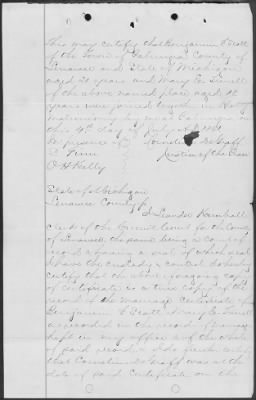 This may certify that Benjamin C Scott
of the Town of Palmyra County of
Lenawee and State of Michigan
aged 21 years and Mary E.
of the above named place aged 18
years were joined together in Holy
matrimony by me at Palmyra on
this 4th day of July A.D. 1861
In presence of
Cornelius De Graff
Justice of the Peace
O H Kelly
State of Michigan
Lenawee County
I Leander Kimball
clerk of the Circuit Court for the county
of Lenawee, the same being a court of
record & having a seal of which seal
I have the custody & control do hereby
certify that the above & foregoing copy
of certificate is a true copy of the
record of the marriage certificate of
Benjamin C Scott & Mary E.
as recorded in the record of marriages
kept in my office and of the whole
of said record & I do further certify
that Cornelius De Graff was at the
date of said certificate on the